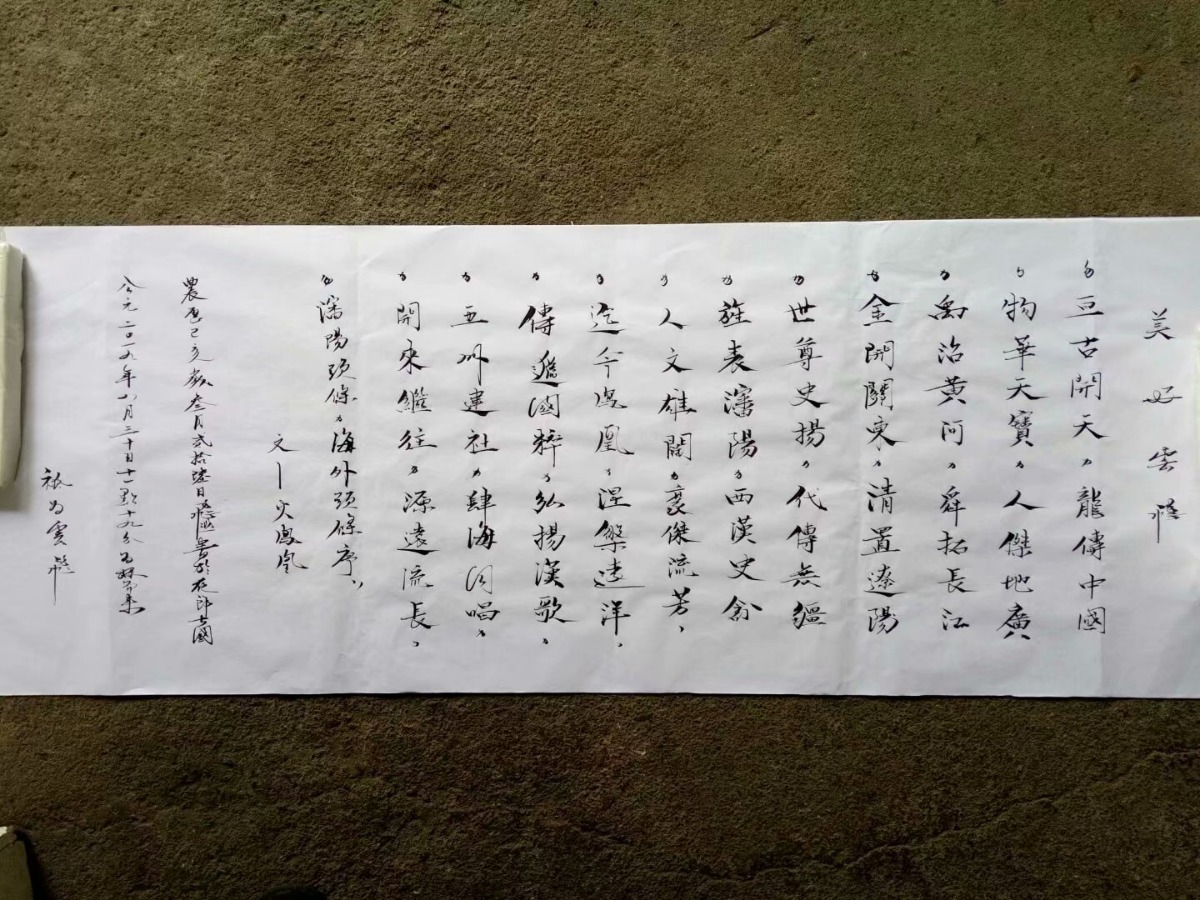 美好
亘古開天，龍傳中國
物華天寶，人傑地廣
禹治黃河，舜拓長江
金開關東，清置遼陽
世尊史揚，代傳無疆
旌表瀋陽，西漢史翕
人文雄闊，豪傑流芳，
迄今鳳凰，涅槃遠洋，
傳遞國粹，弘揚漢歌，
五州建社，肆海同唱，
開來繼往，源遠流長，
瀋陽頭條，海外頭條序，
文一火鳳凰
農歷己亥歲叁月貳拾陸日於夜郎古國
公元二〇一九年八月三十日十一點十九分